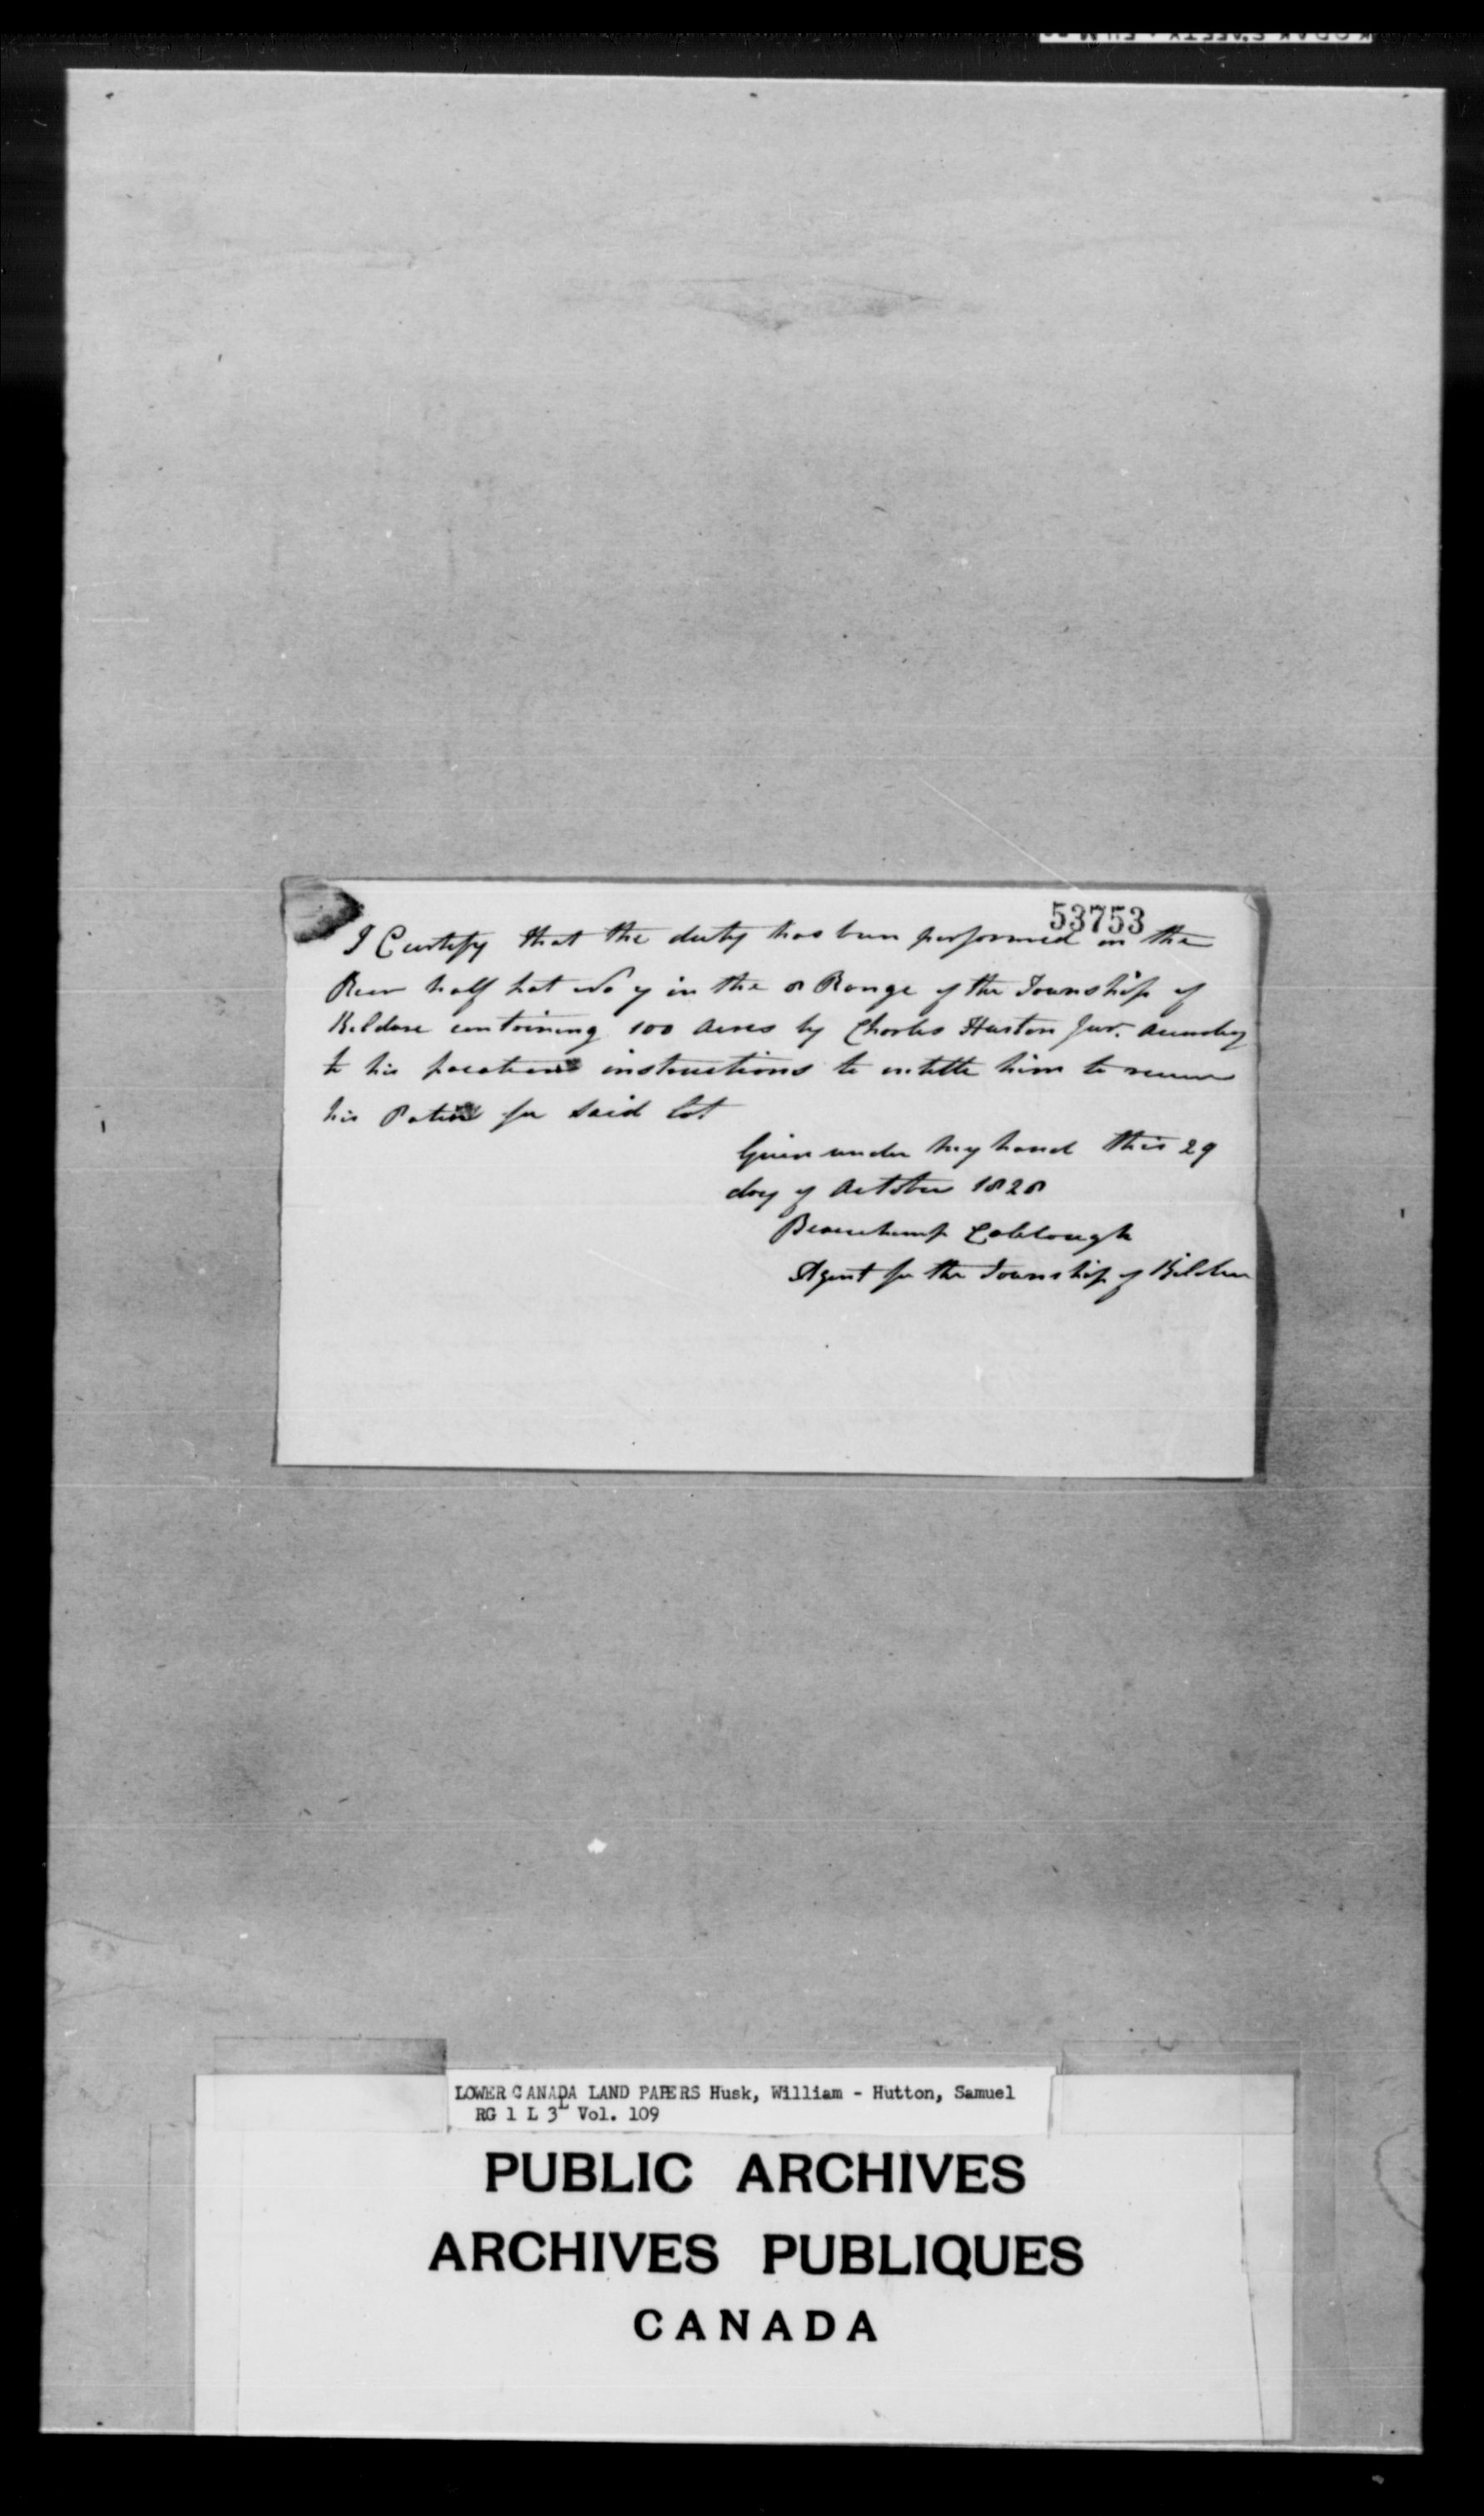 53753
I Certify that the duty has been performed on the
Rear half Lot No 9 in the 8 Range of the Township of
Kildare containing 100 acres by Charles Huston Junr. according
to his location instructions to entitle him to receive
his Patent for said lot
Given under my hand this 29
day of October 1828
Beauchamp Colclough
Agent for the Township of Kildare
LOWER CANADA LAND PAPERS Husk, William - Hutton, Samuel
RG 1 L 3L Vol. 109
PUBLIC ARCHIVES
ARCHIVES PUBLIQUES
CANADA